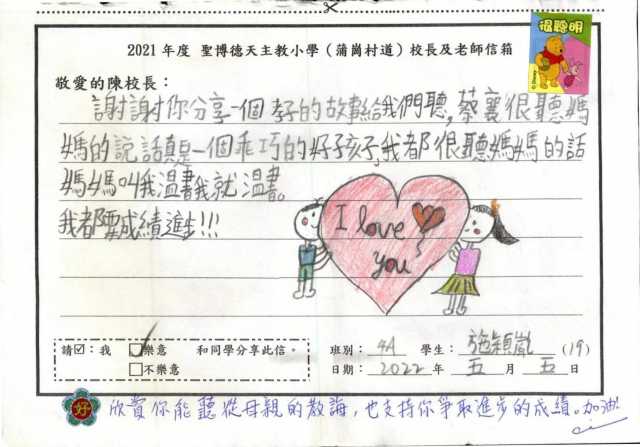 2021 年度 聖博德天主教小學(蒲崗村道)校長及老師信箱
很聰明
© Disney
敬愛的陳校長:
謝謝你分享一個孝的故事給我們聽,蔡襄很聽媽
媽的說話真是一個乖巧的好孩子,我都很聽媽媽的話
媽媽叫我溫書我就溫書。
我都要成績進步!!!
I love
you
請☑:我 ☑樂意 和同學分享此信。
□不樂意
班別: 4A 學生: 施穎嵐 (19)
日期: 2022 年 五 月 五 日
好 欣賞你能聽從母親的教誨,也支持你爭取進步的成績。加油!